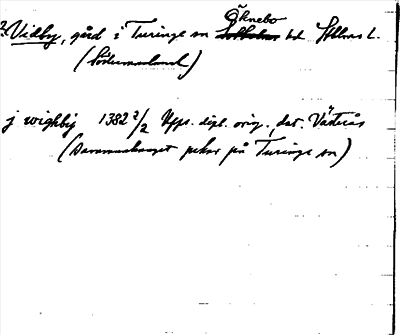 ?Vidby, gård i Turinge sn Öknebo hd Sthlms l.
(Södermanland)
j wighby 1382 2/2 Upps. dipl. orig., dat. Västerås
(Sammanhanget pekar på Turinge sn)